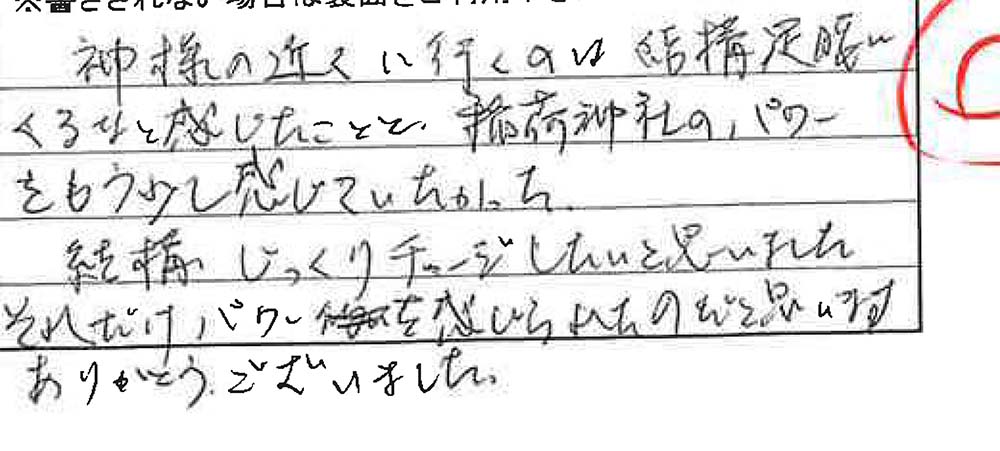 ※書ききれない場合は裏面をご利用下さ
神様の近くに行くのは結構足腰に
くるなと感じたことと、稲荷神社のパワー
をもう少し感じていたかった。
結構じっくりチャージしたいと思いました
それだけパワーを感じられたのだと思います
ありがとうございました。